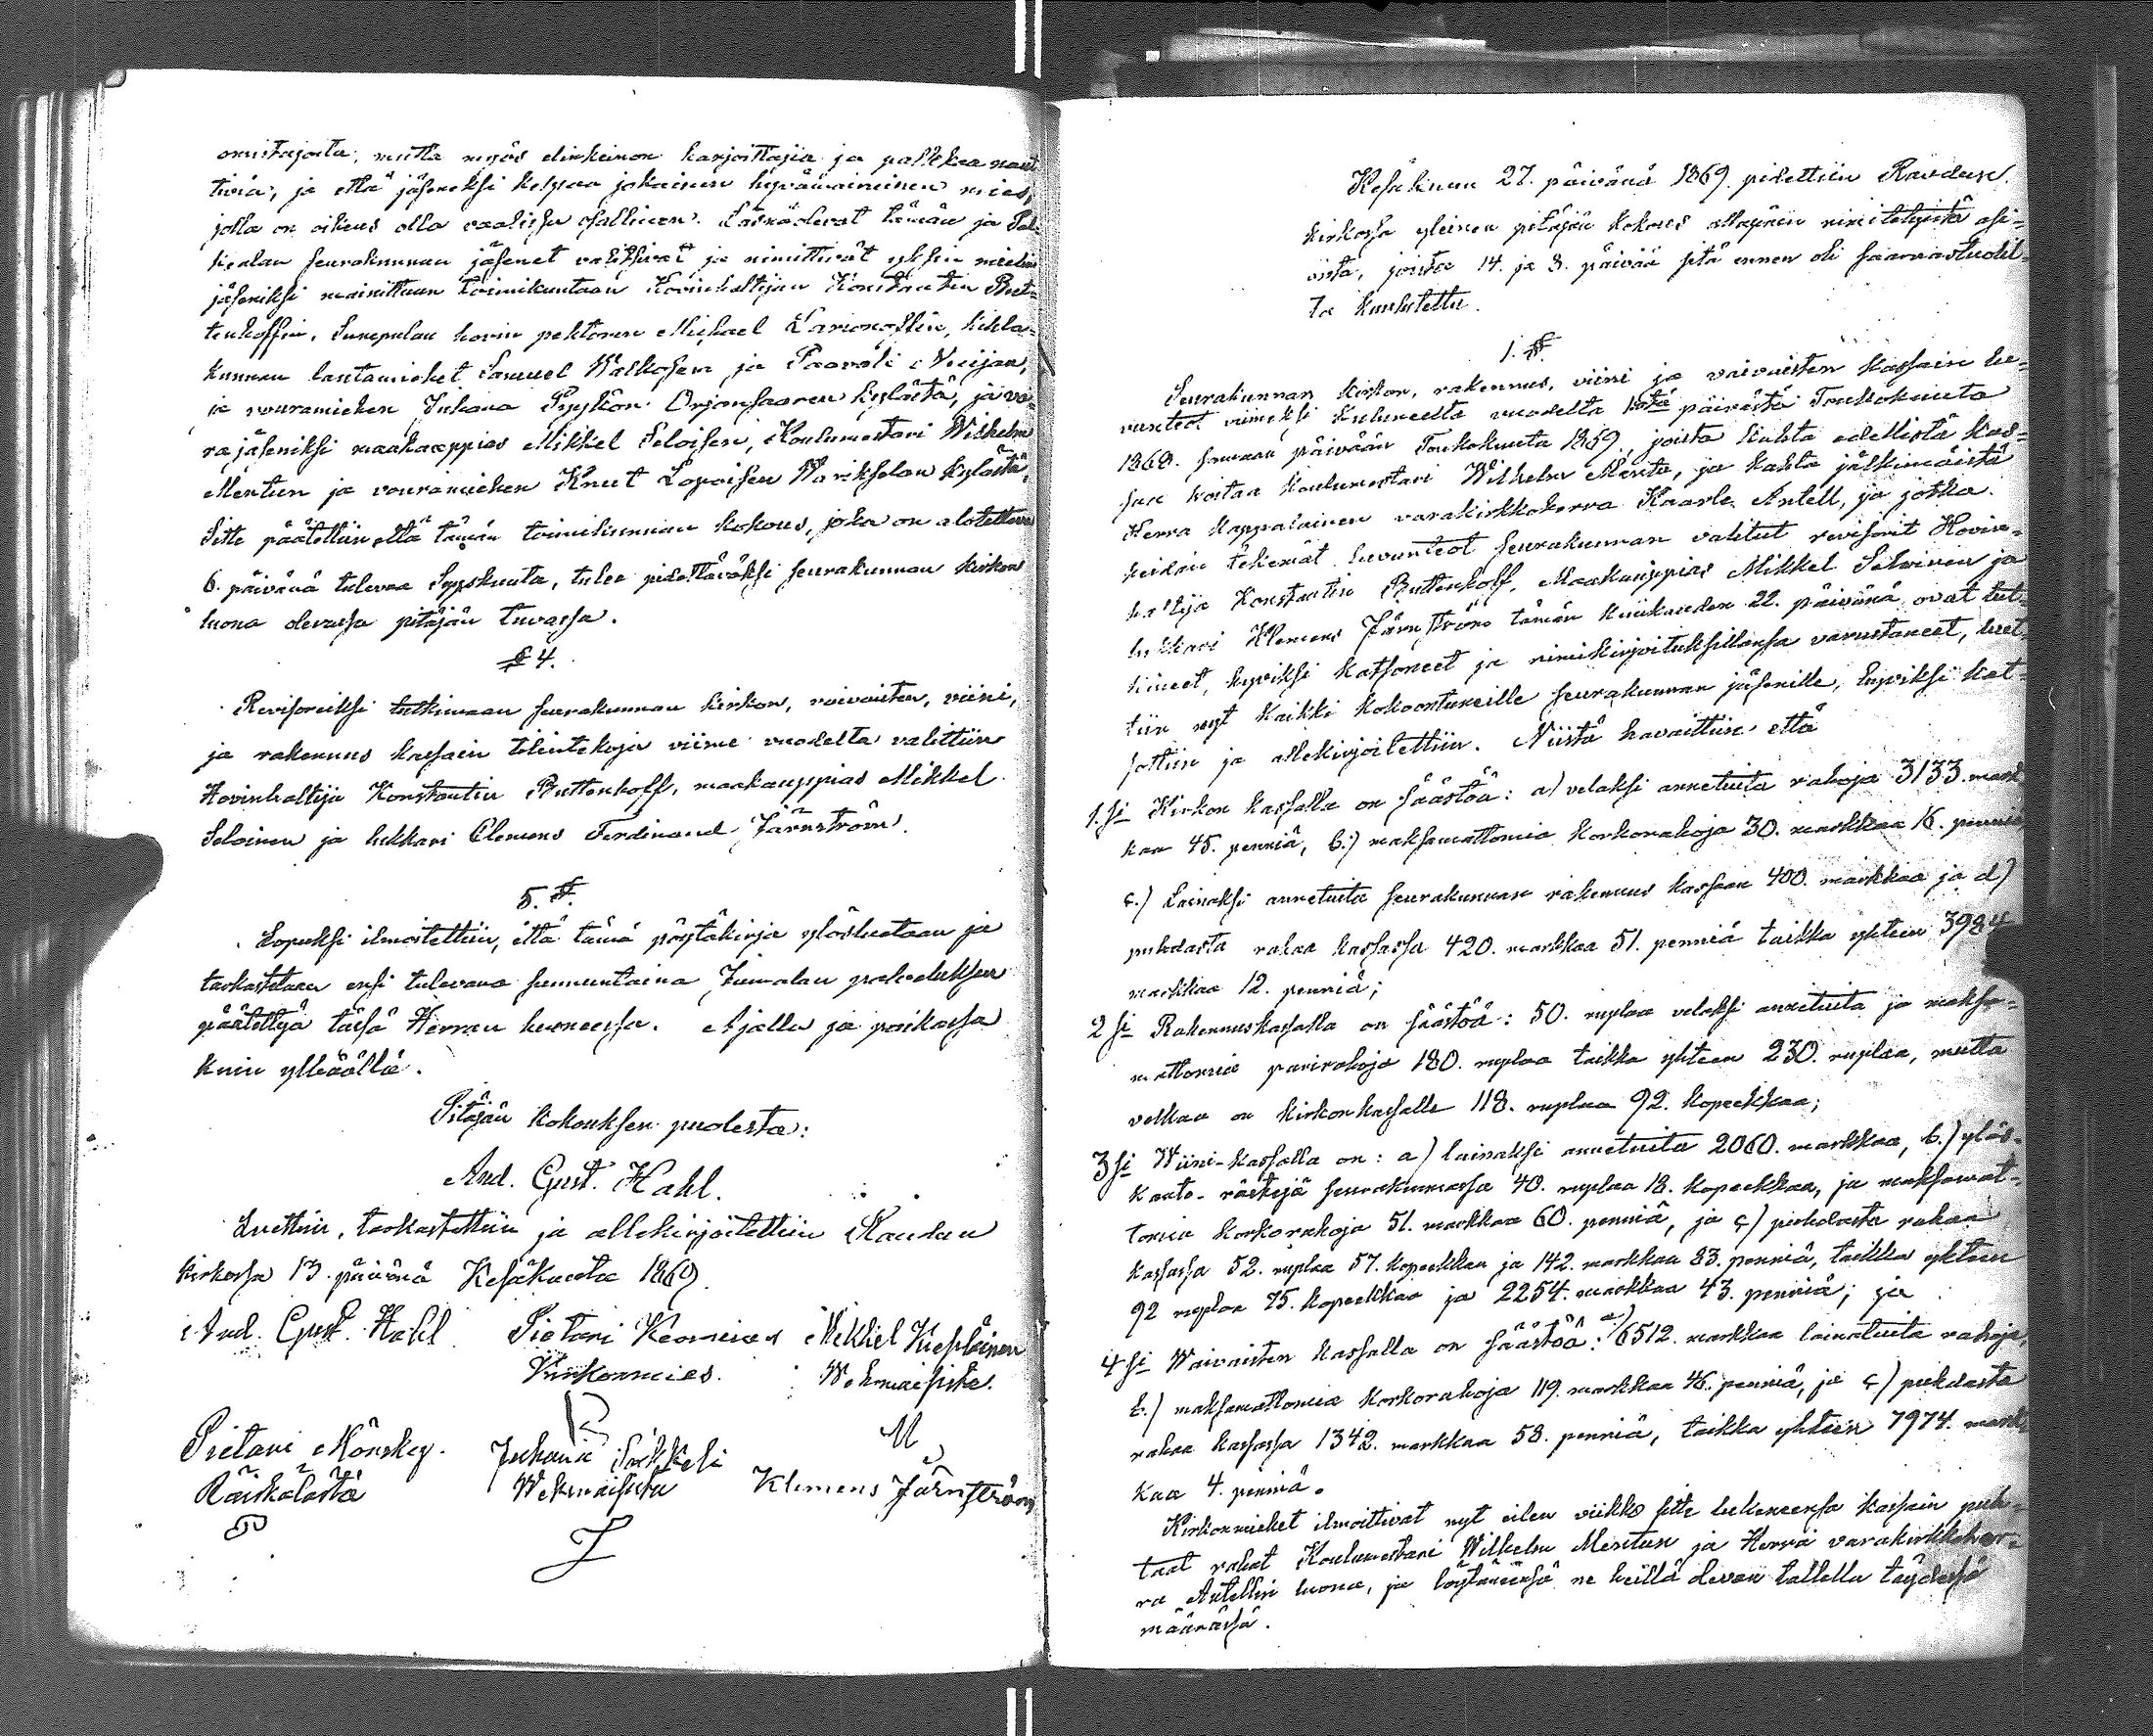 omistajoita, mutta myös elinkeinon harjoittajia ja palkkaa naut
tivia; ja että jäseneksi kelpaa jokainen hyvämaineinen mies,
jolla on oikeus olla vaalissa osallinen. Läsnäolevat tämän ja
kealan seurakunnan jäsenet valitsivat ja nimittivät yksin mielin
jäseniksi mainittuun toimikuntaan Hovinhaltijan Konstantin But-
tenhoffin, hovin pehtoren Mihael Larionoffin, kihla-
kunnan lautamiehet Samuel ja Paavali
ja vouramiehen Juhana Pyykön Orjansaaren kylästä, ja va-
rajäseniksi maakauppias Mikkel Seloisen, Koulumestari Wilhelm
Mentun ja vouramiehen Knut Lopoisen Warikselan kylästä,
Sitte päätettiin että tämän toimikunnan kokous, joka on alotettava
6. päivänä tulevaa Syyskuuta, tulee pidettäväksi seurakunnan kirkon
luona olevassa pitäjän tuvassa.
§ 4.
Revisoreiksi tutkimaan seurakunnan kirkon, vaivaisten, viini,
ja rakennus kassain tilintekoja viime vuodelta valittiin
Hovinhaltija Konstantin Buttenhoff, maakauppias Mikkel
Seloinen ja lukkari Clemens Ferdinand Järnström.
5. §.
Lopuksi ilmoitettiin, että tämä pöytäkirja ylösluetaan ja
tarkastetaan ensi tulevana sunnuntaina Jumalan palveluksen
päätettyä tässä Herran huoneessa. Ajalla ja paikassa
kuin ylläällä.
Pitäjän kokouksen puolesta:
And. Gust. Hahl.
Luettiin, tarkastettiin ja allekirjoitettiin Raudun
kirkossa 13. päivänä Kesäkuuta 1869.
And. Gust. Hahl Pietari Mikkel Kiepläinen
Kirkonmies. Wehmaisista.
Pietari Mönskey. Juhana M
Räiskälästä Wehmaisista Klemens Järnström
Kesäkuun 27. päivänä 1869. pidettiin Raudun
kirkossa yleinen pitäjän kokous allapäin nimitetyistä asi-
oista, joista 14. ja 8. päivää sitä ennen oli saarnastuolil-
ta kuulutettu.
1. §.
Seurakunnan kirkon, rakennus, viini ja vaivaisten kassain lu-
vunteot viimeksi kuluneelta vuodelta 1stä päivästä Toukokuuta
1868. samaan päivään Toukokuuta 1869, joista kahta edellistä kas-
saa hoitaa koulumestari Wilhelm Mentu, ja kahta jälkimäistä
Herra Kappalainen varakirkkoherra Kaarle Antell, ja jotka
heidän tekemät luvunteot seurakunnan valitut revisorit Hovin-
haltija Konstantin Buttenhoff, Maakauppias Mikkel Seloinen ja
lukkari Klemens Järnström tämän kuukauden 22. päivänä ovat tut-
kineet, hyviksi katsoneet ja nimikirjoituksillansa varustaneet, luet-
tiin nyt kaikki kokoontuneille seurakunnan jäsenille, hyviksi kat-
sottiin ja allekirjoitettiin. Niistä havaittiin että
1.si Kirkon kassalla on säästöä: a) velaksi annetuita rahoja 3133. mark
kaa 45. penniä, b.) maksamattomia korkorahoja 30. markkaa 16. penniä
c.) Lainaksi annetuita seurakunnan rakennus kassaan 400. markkaa ja d)
puhdasta rahaa kassassa 420. markkaa 51. penniä taikka yhteen 3984
markkaa 12. penniä;
2 si Rakennuskassalla on säästöä: 50. ruplaa velaksi annetuita ja maksa-
mattomia parirahoja 180. ruplaa taikka yhteen 230. ruplaa, mutta
velkaa on kirkonkassalle 118. ruplaa 92. kopeekkaa;
3 si Wiini-kassalla on: a) lainaksi annetuita 2060. markkaa, b.) ylös-
kanto-rästejä seurakunnassa 40. ruplaa 18. kopeekkaa, ja maksamat-
tomia korkorahoja 51. markkaa 60. penniä, ja c) puhdasta rahaa
kassassa 52. ruplaa 57. kopeekkaa ja 142. markkaa 83. penniä, taikka yhteen
92 ruplaa 75. kopeekkaa ja 2254. markkaa 43. penniä; ja
4 si Waivaisten kassalla on säästöä: a) 6512. markkaa lainatuita rahoja,
b.) maksamattomia korkorahoja 119. markkaa 46. penniä, ja c) puhdasta
rahaa kassassa 1342. markkaa 58. penniä, taikka yhteen 7974. mark
kaa 4. penniä.
Kirkonmiehet ilmoittivat nyt eilen viikko sitte lukeneensa kassain puh-
taat rahat Koulumestari Wilhelm Mentun ja Herra varakirkkoher-
ra Antellin luona, ja löytäneensä ne heillä olevan tallella täydessä
määrässä.